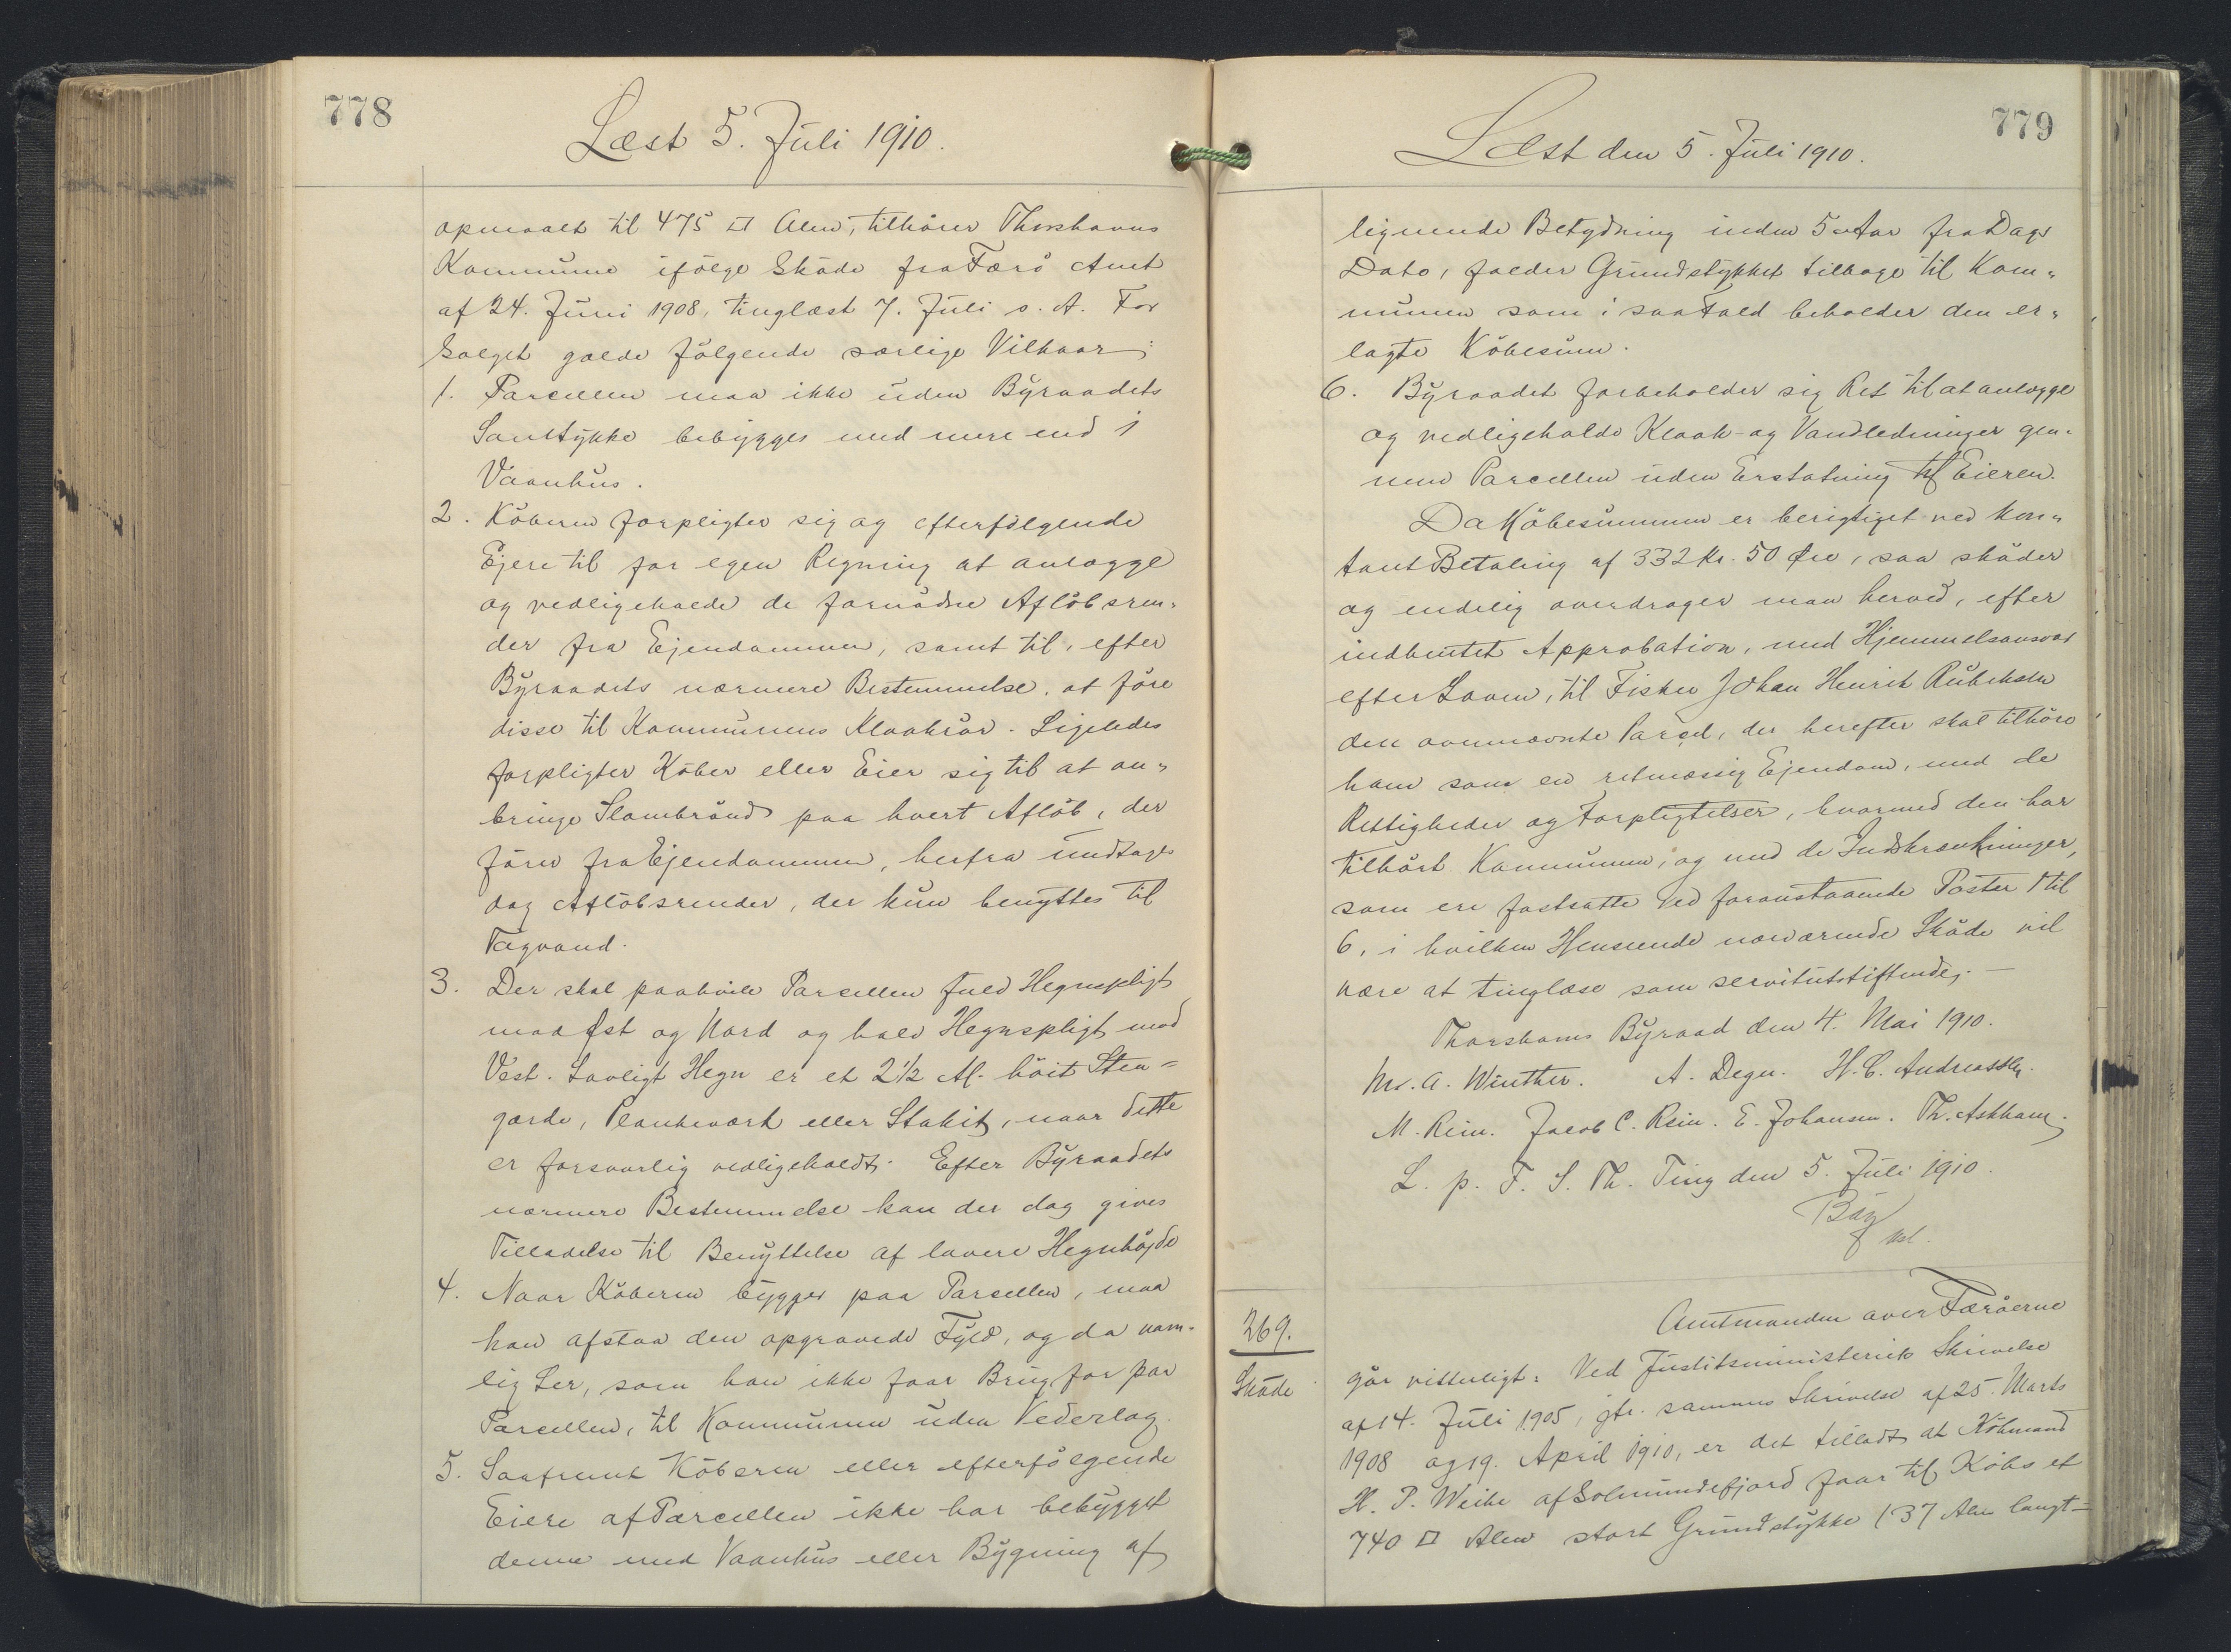 778
Læst 5. Juli 1910.
opmaalt til 475 □ Alen, tilhører Thorshavns
Kommune ifølge Skøde fra Færø Amt
af 24. Juni 1908, tinglæst 7. Juli s. A. For
Salget gælde følgende særlige Vilkaar:
1. Parcellen maa ikke uden Byraadets
Samtykke bebygges med mere end 1
Vaanhus.
2. Køberen forpligter sig og efterfølgende
Ejere til for egen Regning at anlægge
og vedligeholde de fornødne Afløbsren-
der fra Ejendommen, samt til, efter
Byraadets nærmere Bestemmelse, at føre
disse til Kommunens Kloakrør. Ligeledes
forpligter Køber eller Eier sig til at an-
bringe Slambrønd paa hvert Afløb, der
fører fra Ejendommen, herfra undtages
dog Afløbsrender, der kun benyttes til
Tagvand.
3. Der skal paahvile Parcellen fuld Hegnspligt
mod Øst og Nord og halv Hegnspligt mod
Vest. Lovligt Hegn er et 2 1/2 Al. høit Sten-
gærde, Plankeværk eller Stakit, naar dette
er forsvarlig vedligeholdt. Efter Byraadets
nærmere Bestemmelse kan der dog gives
Tilladelse til Benyttelse af lavere Hegnhøjde
4. Naar Køberen bygger paa Parsellen, maa
han afstaa den opgravede Fyld, og da nam-
lig Ler, som han ikke faar Brug for paa
Parcellen, til Kommunen uden Vederlag.
5. Saafremt Køberen eller efterfølgende
Eiere af Parcellen ikke har bebygget
denne med Vaanhus eller Bygning af
779
Læst den 5. Juli 1910.
lignende Betydning inden 5 Aar fra Dags
Dato, falder Grundstykket tilbage til Kom-
munen som i saa Fald beholder den er-
lagte Købesum.
6. Byraadet forbeholder sig Ret til at anlægge
og vedligeholde Kloak- og Vandledninger gen-
nem Parcellen uden Erstatning til Eieren.
Da Købesummen er berigtiget ved kon-
tant Betaling af 332 Kr. 50 Øre, saa skøder
og endelig overdrager man herved, efter
indhentet Approbation, med Hjemmelsansvar
efter Loven, til Fisker Johan Henrik Rubeksen
den ovennævnte Parcel, der herefter skal tilhøre
ham som en retmæssig Ejendom, med de
Rettigheder og Forpligtelser, hvormed den har
tilhørt Kommunen, og med de Indskrænkninger,
som ere fastsatte ved foranstaaende Poster 1 til
6, i hvilken Henseende nærværende Skøde vil
være at tinglæse som servitutstiftende. —
Thorshavns Byraad den 4. Mai 1910.
Mr. A. Winther. A. Degn. H. C. Andreassen.
M. Rein. Jacob C. Rein. E. Johansen. Th. Askham.
L. p. F. S. Th. Ting den 5. Juli 1910.
269.
Skøde
Amtmanden over Færøerne
gør vitterligt: Ved Justitsministeriets Skrivelse
af 14. Juli 1905, jfr. sammes Skrivelse af 25. Marts
1908 og 19. April 1910, er det tilladt at Købmand
H. P. Weihe af Solmundefjord faar til Købs et
740 □ Alen stort Grundstykke (37 Alen langt-